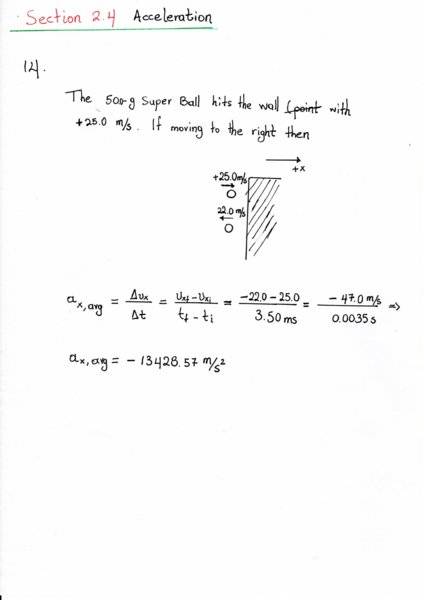 Section 2.4 Acceleration
14.
The 500-g Super Ball hits the wall (point with
+25.0 m/s. If moving to the right then
+x
+25.0m/s
22.0 m/s
a x,avg = Δvx / Δt = vxf - vxi / tf - ti = -22.0 - 25.0 / 3.50 ms = - 47.0 m/s / 0.0035 s ⇒
ax,avg = - 13428.57 m/s²